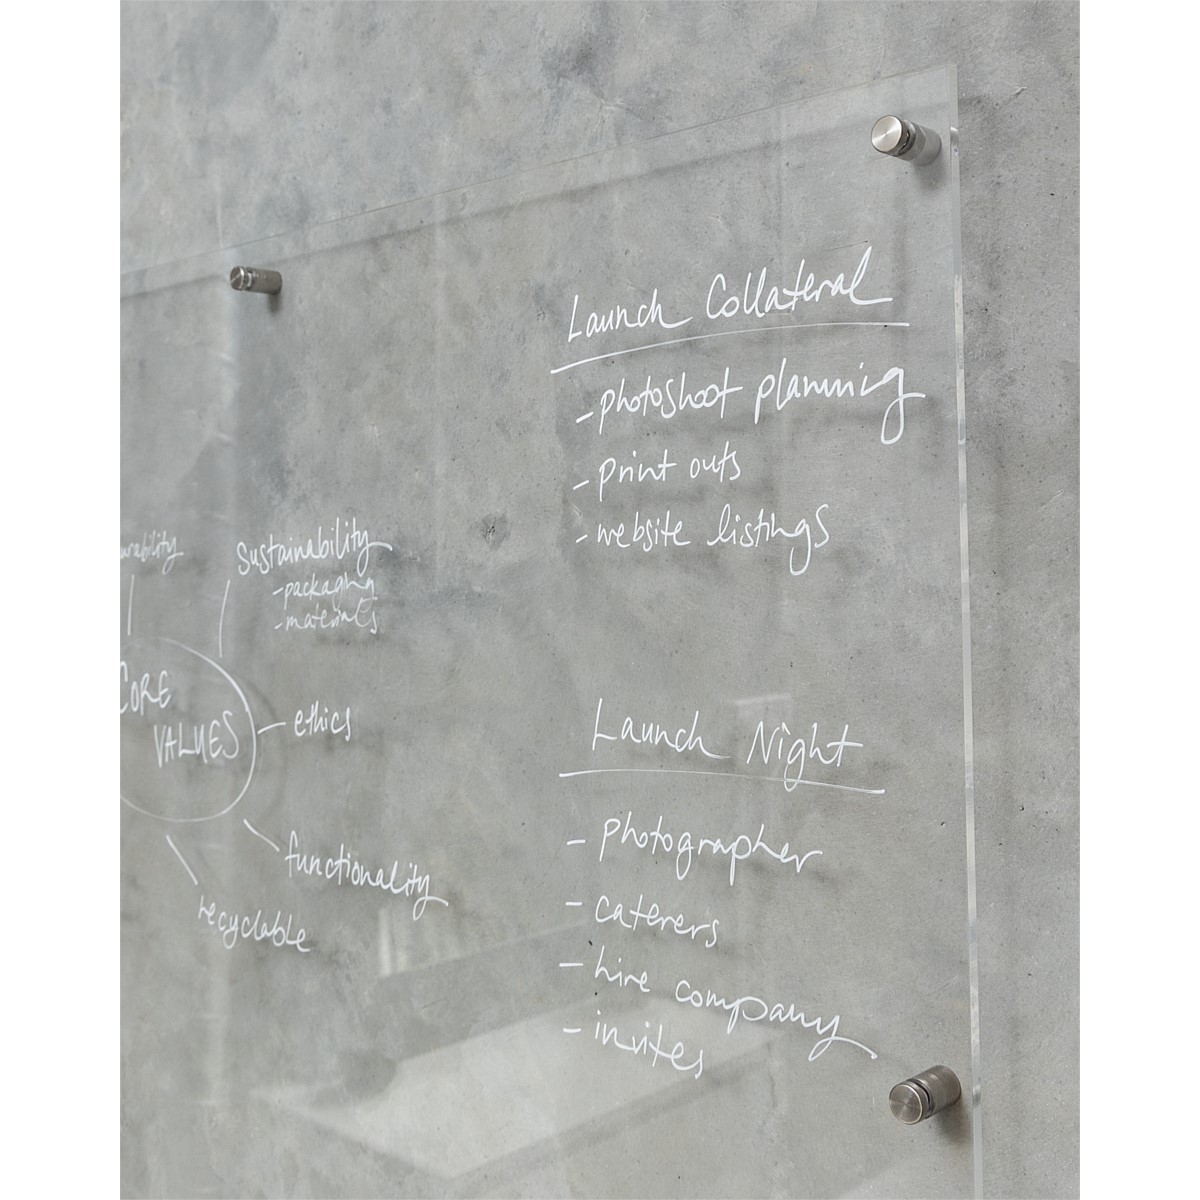 Launch Collateral
- photoshoot planning
- print outs
- website listings
Sustainability
- packaging
- materials
CORE
VALUES
ethics
functionality
recyclable
Launch Night
- photographer
- caterers
- hire company
- invites